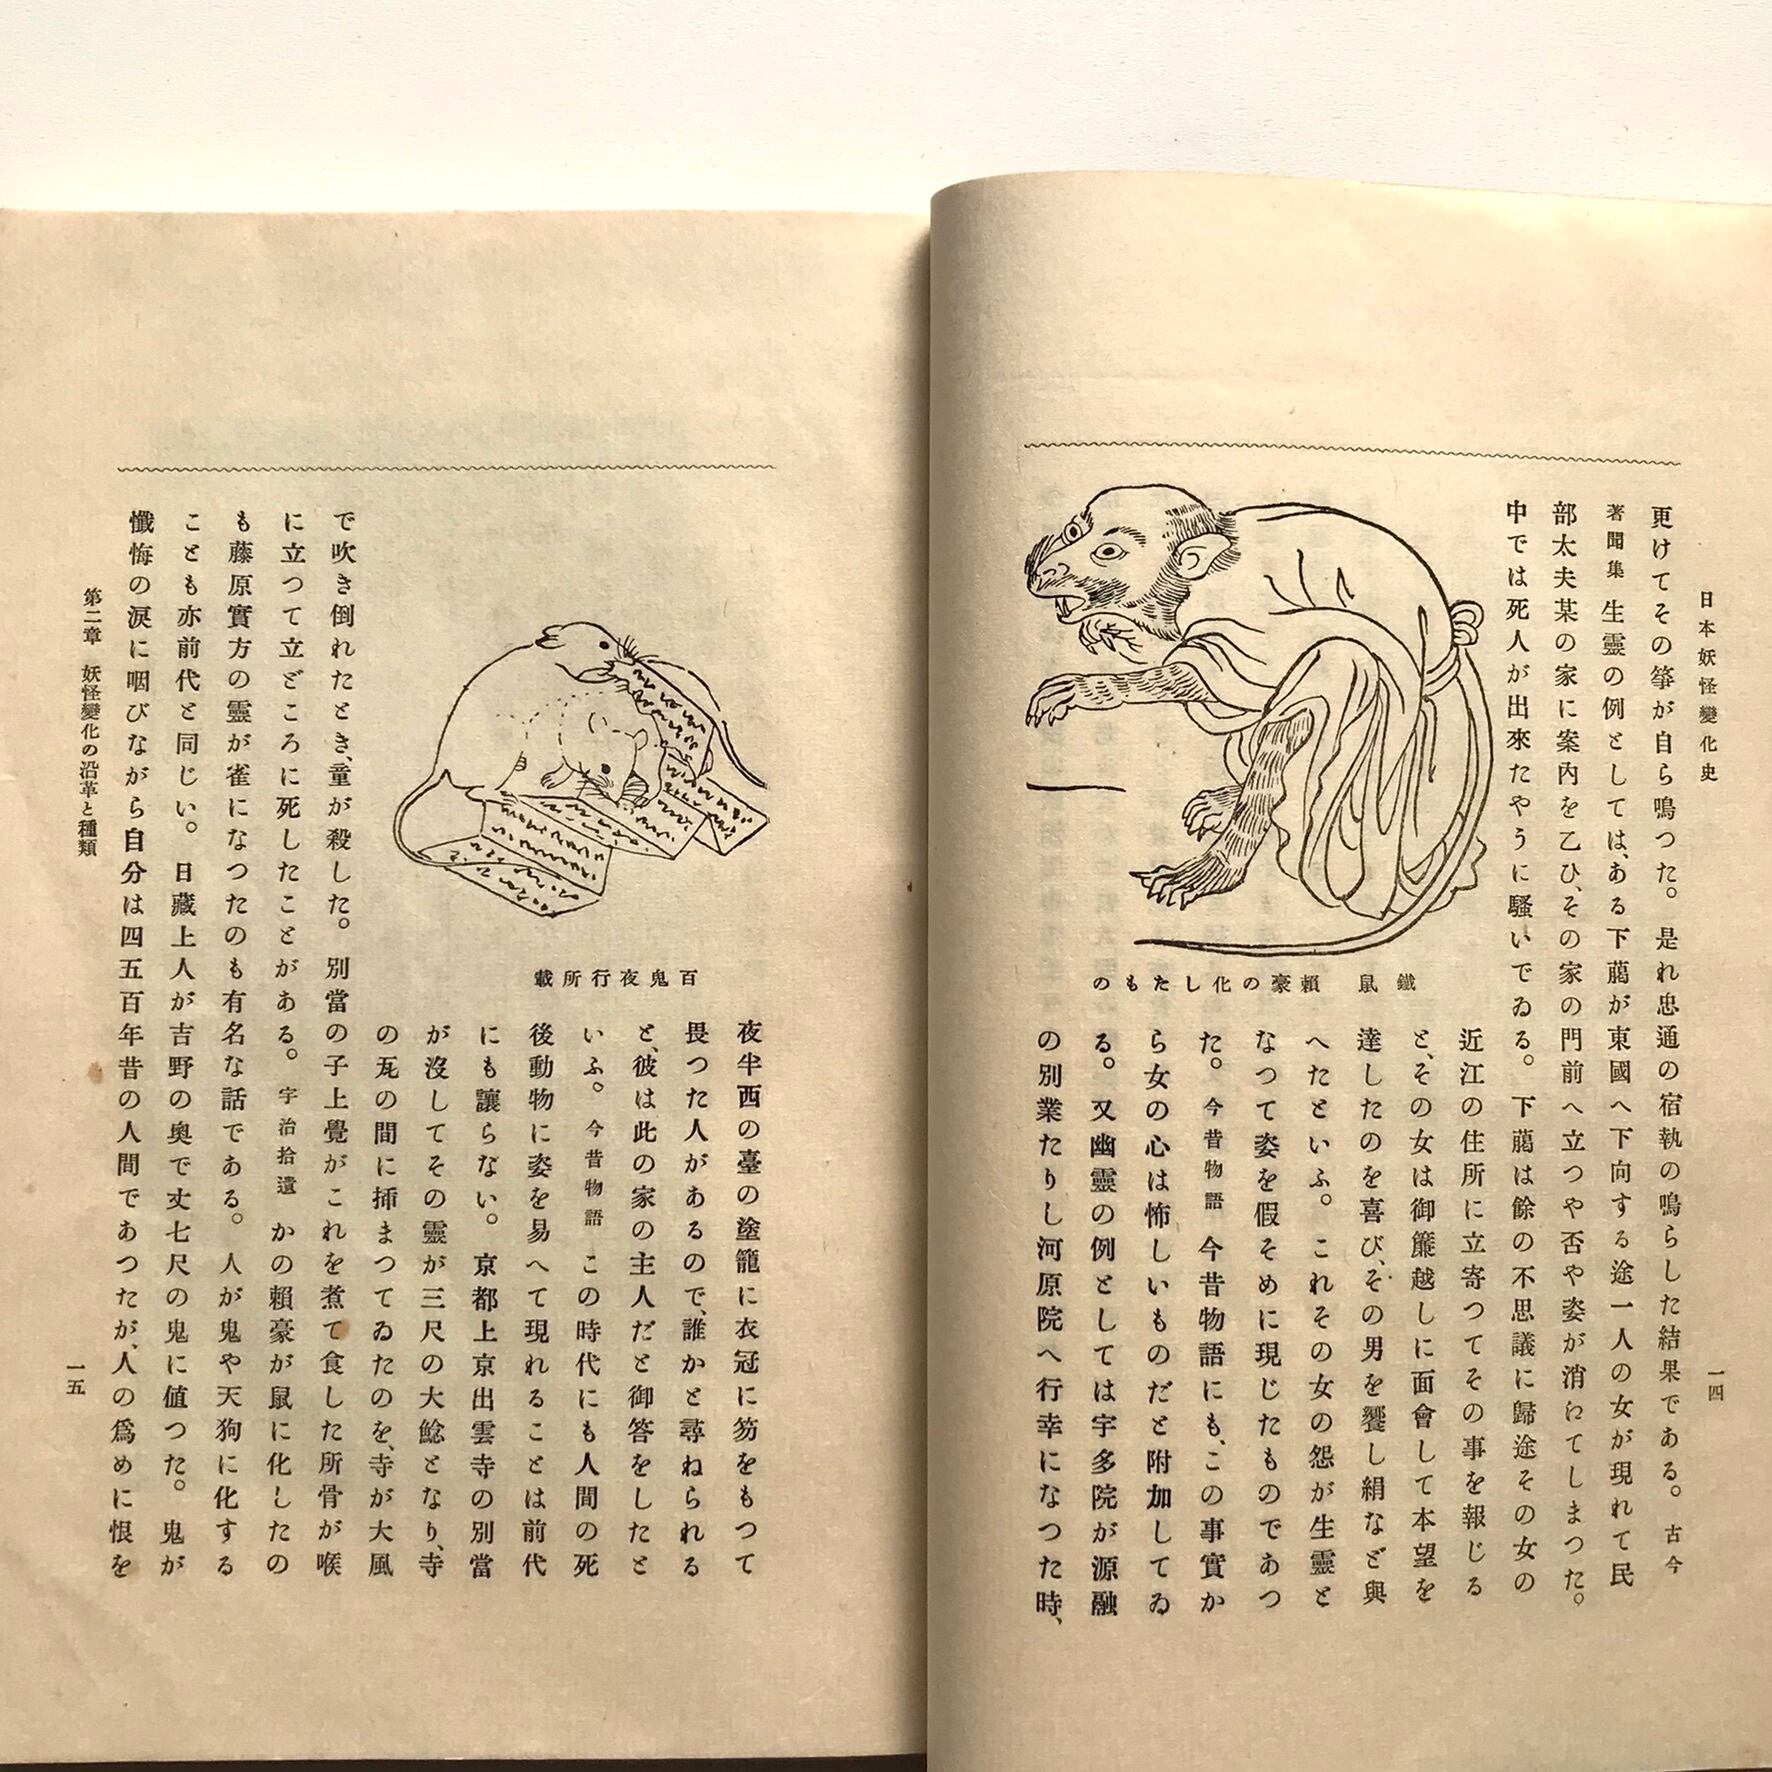 日本妖怪變化史
更けてその箏が自ら鳴つた。是れ忠通の宿執の鳴らした結果である。古今
著聞集 生靈の例としては、ある下﨟が東國へ下向する途一人の女が現れて民
部太夫某の家に案内を乞ひ、その家の門前へ立つや否や姿が消えてしまつた。
中では死人が出來たやうに騷いでゐる。下﨟は餘の不思議に歸途その女の
近江の住所に立寄つてその事を報じる
と、その女は御簾越しに面會して本望を
達したのを喜び、その男を饗し絹など與
へたといふ。これその女の怨が生靈と
なつて姿を假そめに現じたものであつ
た。今昔物語 今昔物語にも、この事實か
ら女の心は怖しいものだと附加してゐ
る。又幽靈の例としては宇多院が源融
の別業たりし河原院へ行幸になつた時、
鐵鼠 賴豪の化したもの
一四
夜半西の臺の塗籠に衣冠に笏をもつて
畏つた人があるので、誰かと尋ねられる
と、彼は此の家の主人だと御答をしたと
いふ。今昔物語 この時代にも人間の死
後動物に姿を易へて現れることは前代
にも讓らない。京都上京出雲寺の別當
が沒してその靈が三尺の大鯰となり、寺
の瓦の間に揷まつてゐたのを、寺が大風
で吹き倒れたとき、童が殺した。別當の子上覺がこれを煮て食した所骨が喉
に立つて立どころに死したことがある。宇治拾遺 かの賴豪が鼠に化したの
も藤原實方の靈が雀になつたのも有名な話である。人が鬼や天狗に化する
ことも亦前代と同じい。日藏上人が吉野の奧で丈七尺の鬼に値つた。鬼が
懺悔の淚に咽びながら自分は四五百年昔の人間であつたが、人の爲めに恨を
百鬼夜行所載
第二章 妖怪變化の沿革と種類
一五